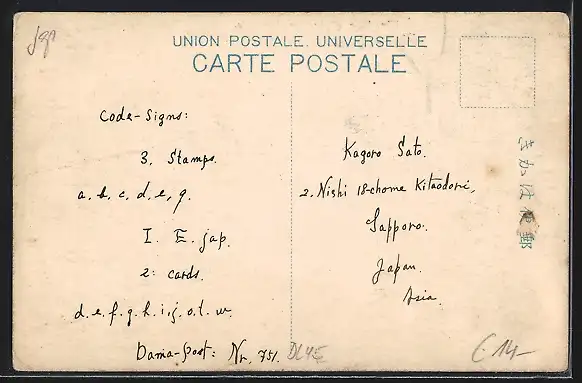 Jap
UNION POSTALE UNIVERSELLE
CARTE POSTALE
Code-Signs:
3. Stamps.
a. b. c. d. e, g.
I. E. jap.
2: cards.
d. e. f. g. h. i. j. o. t. w.
Dama-post: Nr. 751.
Kagoro Sato.
2. Nishi 18-chome Kitaodori,
Sapporo.
Japan.
Asia.
きかは便郵
€ 14-